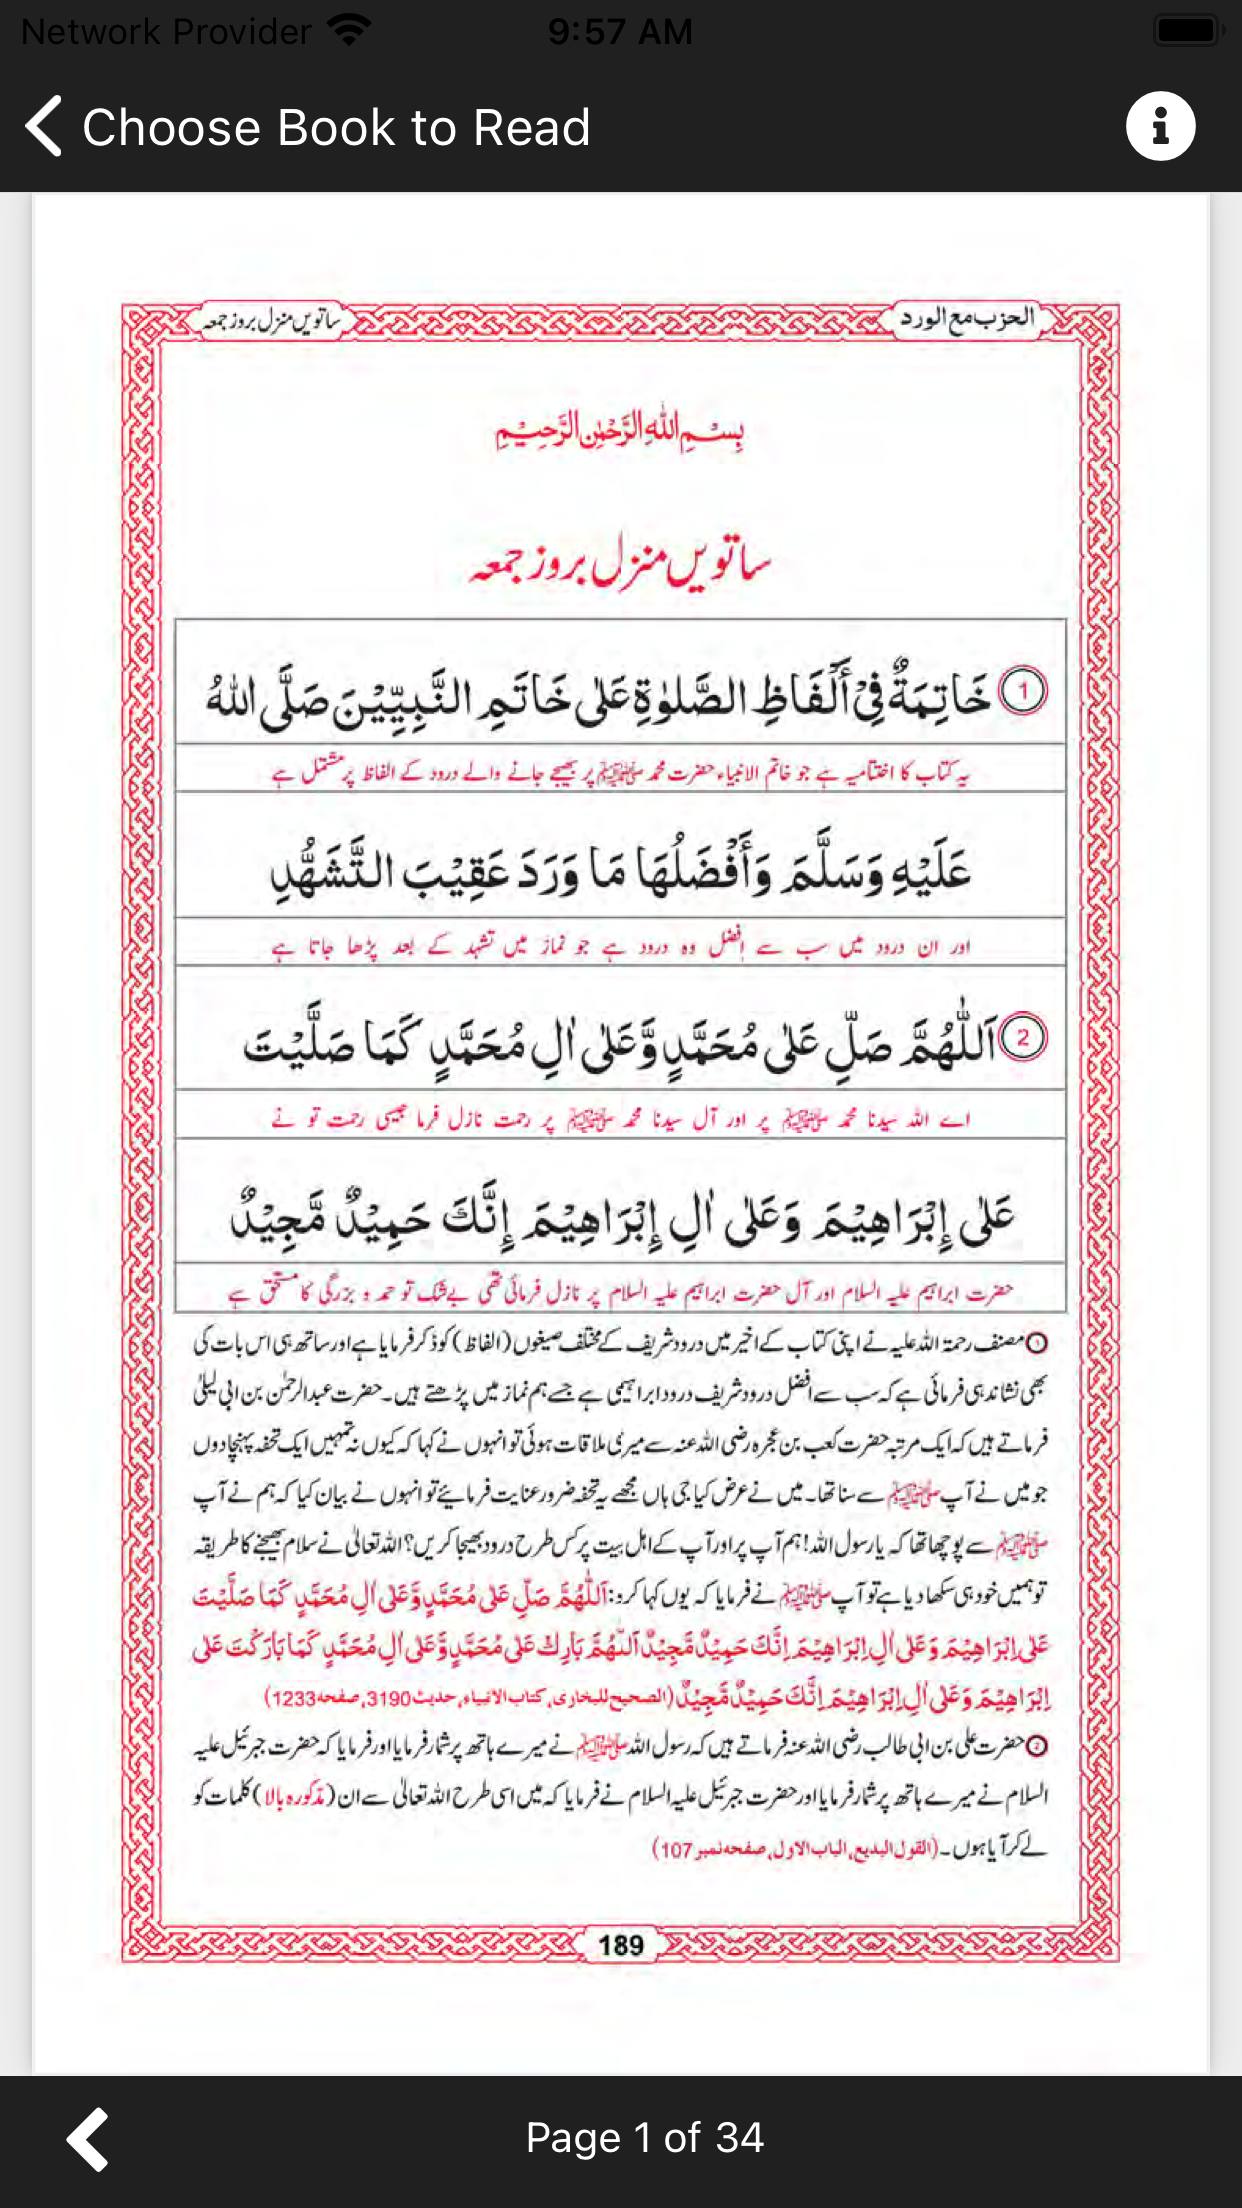 Network Provider 9:57 AM
Choose Book to Read
الحزب مع الورد
ساتویں منزل بروز جمعہ
بِسْمِ اللّٰهِ الرَّحْمٰنِ الرَّحِيْمِ
ساتویں منزل بروز جمعہ
1 خَاتِمَةٌ فِيْ أَلْفَاظِ الصَّلٰوةِ عَلٰى خَاتَمِ النَّبِيِّيْنَ صَلَّى اللهُ
یہ کتاب کا اختتامیہ ہے جو خاتم الانبیاء حضرت محمد ﷺ پر بھیجے جانے والے درود کے الفاظ پر مشتمل ہے
عَلَيْهِ وَسَلَّمَ وَأَفْضَلُهَا مَا وَرَدَ عَقِيْبَ التَّشَهُّدِ
اور ان درود میں سب سے افضل وہ درود ہے جو نماز میں تشہد کے بعد پڑھا جاتا ہے
2 اَللّٰهُمَّ صَلِّ عَلٰى مُحَمَّدٍ وَّعَلٰى اٰلِ مُحَمَّدٍ كَمَا صَلَّيْتَ
اے اللہ سیدنا محمد ﷺ پر اور آل سیدنا محمد ﷺ پر رحمت نازل فرما جیسی رحمت تو نے
عَلٰى إِبْرَاهِيْمَ وَعَلٰى اٰلِ إِبْرَاهِيْمَ إِنَّكَ حَمِيْدٌ مَّجِيْدٌ
حضرت ابراہیم علیہ السلام اور آل حضرت ابراہیم علیہ السلام پر نازل فرمائی تھی بے شک تو حمد و بزرگی کا مستحق ہے
۱ مصنف رحمۃ اللہ علیہ نے اپنی کتاب کے اخیر میں درود شریف کے مختلف صیغوں (الفاظ) کو ذکر فرمایا ہے اور ساتھ ہی اس بات کی
بھی نشاندہی فرمائی ہے کہ سب سے افضل درود شریف درود ابراہیمی ہے جسے ہم نماز میں پڑھتے ہیں۔ حضرت عبدالرحمٰن بن ابی لیلیٰ
فرماتے ہیں کہ ایک مرتبہ حضرت کعب بن عجرہ رضی اللہ عنہ سے میری ملاقات ہوئی تو انہوں نے کہا کہ کیوں نہ تمہیں ایک تحفہ پہنچا دوں
جو میں نے آپ ﷺ سے سنا تھا۔ میں نے عرض کیا جی ہاں مجھے یہ تحفہ ضرور عنایت فرمایئے تو انہوں نے بیان کیا کہ ہم نے آپ
ﷺ سے پوچھا تھا کہ یا رسول اللہ! ہم آپ پر اور آپ کے اہل بیت پر کس طرح درود بھیجا کریں؟ اللہ تعالیٰ نے سلام بھیجنے کا طریقہ
تو ہمیں خود ہی سکھا دیا ہے تو آپ ﷺ نے فرمایا کہ یوں کہا کرو: اَللّٰهُمَّ صَلِّ عَلٰى مُحَمَّدٍ وَّعَلٰى اٰلِ مُحَمَّدٍ كَمَا صَلَّيْتَ
عَلٰى اِبْرَاهِيْمَ وَعَلٰى اٰلِ اِبْرَاهِيْمَ اِنَّكَ حَمِيْدٌ مَّجِيْدٌ اَللّٰهُمَّ بَارِكْ عَلٰى مُحَمَّدٍ وَّعَلٰى اٰلِ مُحَمَّدٍ كَمَا بَارَكْتَ عَلٰى
اِبْرَاهِيْمَ وَعَلٰى اٰلِ اِبْرَاهِيْمَ اِنَّكَ حَمِيْدٌ مَّجِيْدٌ (الصحیح للبخاری، کتاب الانبیاء، حدیث 3190، صفحہ 1233)
۲ حضرت علی بن ابی طالب رضی اللہ عنہ فرماتے ہیں کہ رسول اللہ ﷺ نے میرے ہاتھ پر شمار فرمایا اور فرمایا کہ حضرت جبرئیل علیہ
السلام نے میرے ہاتھ پر شمار فرمایا اور حضرت جبرئیل علیہ السلام نے فرمایا کہ میں اسی طرح اللہ تعالیٰ سے ان (مذکورہ بالا) کلمات کو
لے کر آیا ہوں۔ (القول البدیع، الباب الاول، صفحہ نمبر 107)
189
Page 1 of 34